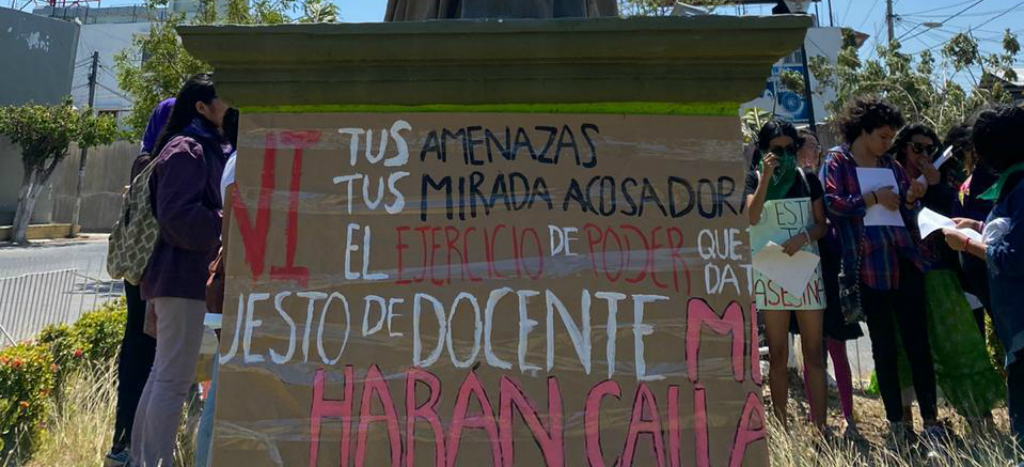 NI TUS AMENAZAS
TUS MIRADA ACOSADORA
EL EJERCICIO DE PODER QUE
DA T
UESTO DE DOCENTE ME
HARÁN CALLA
EST
ASESINA